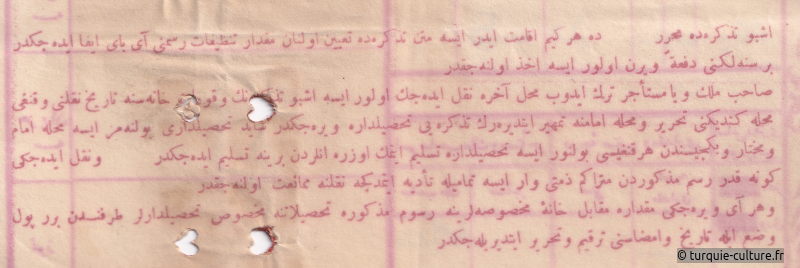 اشبو تذكره‌ده محرر ده هر كيم اقامت ايدر ايسه متن تذكره‌ده تعيين اولنان مقدار تنظيفات رسمنى آى باى ايفا ايده جكدر
بر سنه‌لكنى دفعةً ويرن اولور ايسه اخذ اولنه جقدر
صاحب ملك ويا مستأجر ترك ايدوب محل آخره نقل ايده‌جك اولور ايسه اشبو خانه‌سنه تاريخ نقلنى وقنغى
محله كنديكنى تحرير ومحله امامنه تمهير ايتديره‌رك تذكره يى تحصيلداره ويره جكدر تحصيلدارى بولنه‌مز ايسه محله امام
ومختار وبكجيسندن هرقنغيسى بولنور ايسه تحصيلداره تسليم ايتمك اوزره انلردن برينه تسليم ايده جكدر ونقل ايده‌جكى
كونه قدر رسم مذكوردن متراكم ذمتى وار ايسه تماميله تأديه ايتمدكجه نقلنه ممانعت اولنه جقدر
وهر آى ويره‌جكى مقداره مقابل خانۀ مخصوصه‌لرينه رسوم مذكوره تحصيلاتنه مخصوص تحصيلدارلر طرفندن برر پول
وضع ايله تاريخ وامضاسنى ترقيم وتحرير ايتديريله جكدر
© turquie-culture.fr